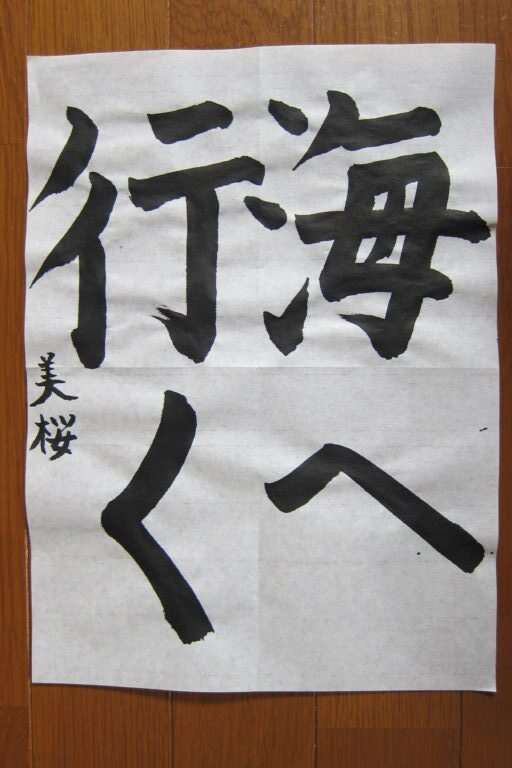 海へ
行く
美桜